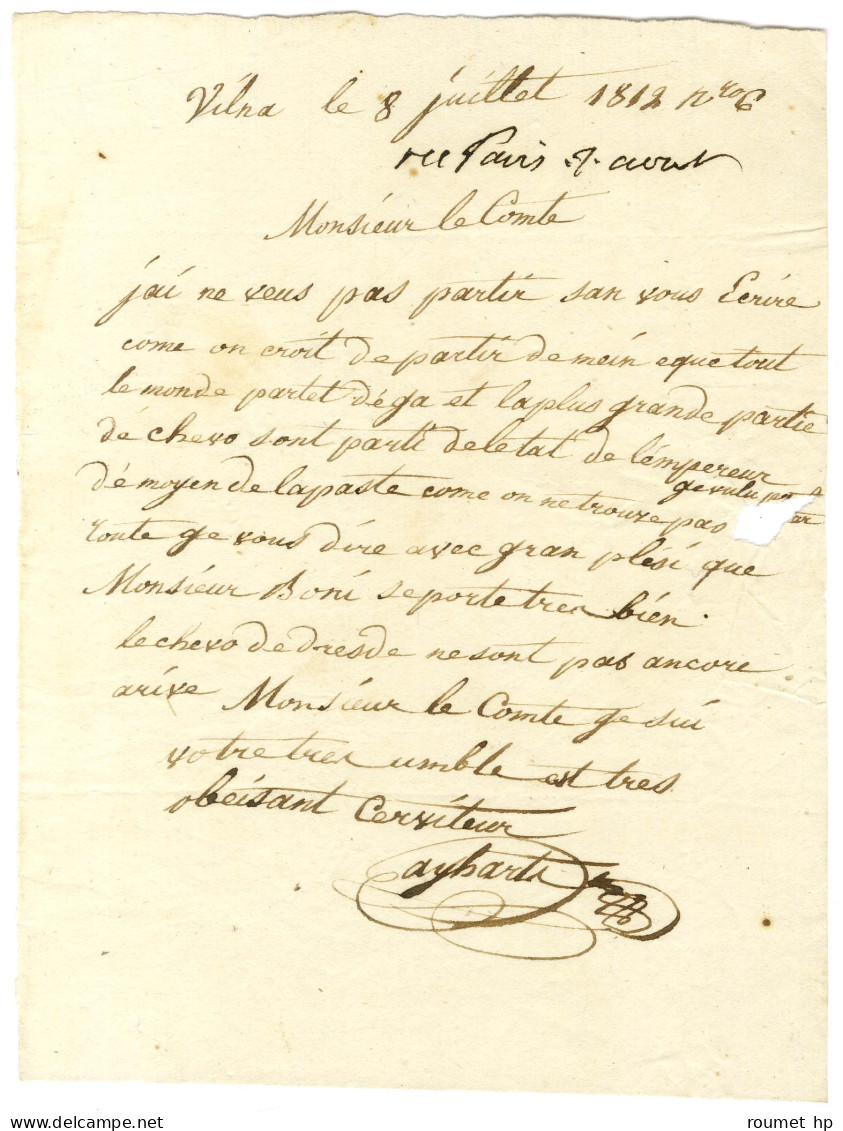 Vilna le 8 juillet 1812 nro 6
Paris 7. aout
Monsieur le Comte
jai ne veus pas partir san vous Ecrire
come on croit de partir de mein e que tout
le monde partet dega et la plus grande partie
dé chevo sont parti de letat de lempereur
ge vulu
dé moyen de la paste come on ne trouve pas
route ge vous dire avec gran plési que
Monsieur Boni se porte tres bien.
le chevo de dresde ne sont pas ancore
arive Monsieur le Comte ge sui
votre tres umble est tres
obeisant Cerviteur
ayharti
roumet hp